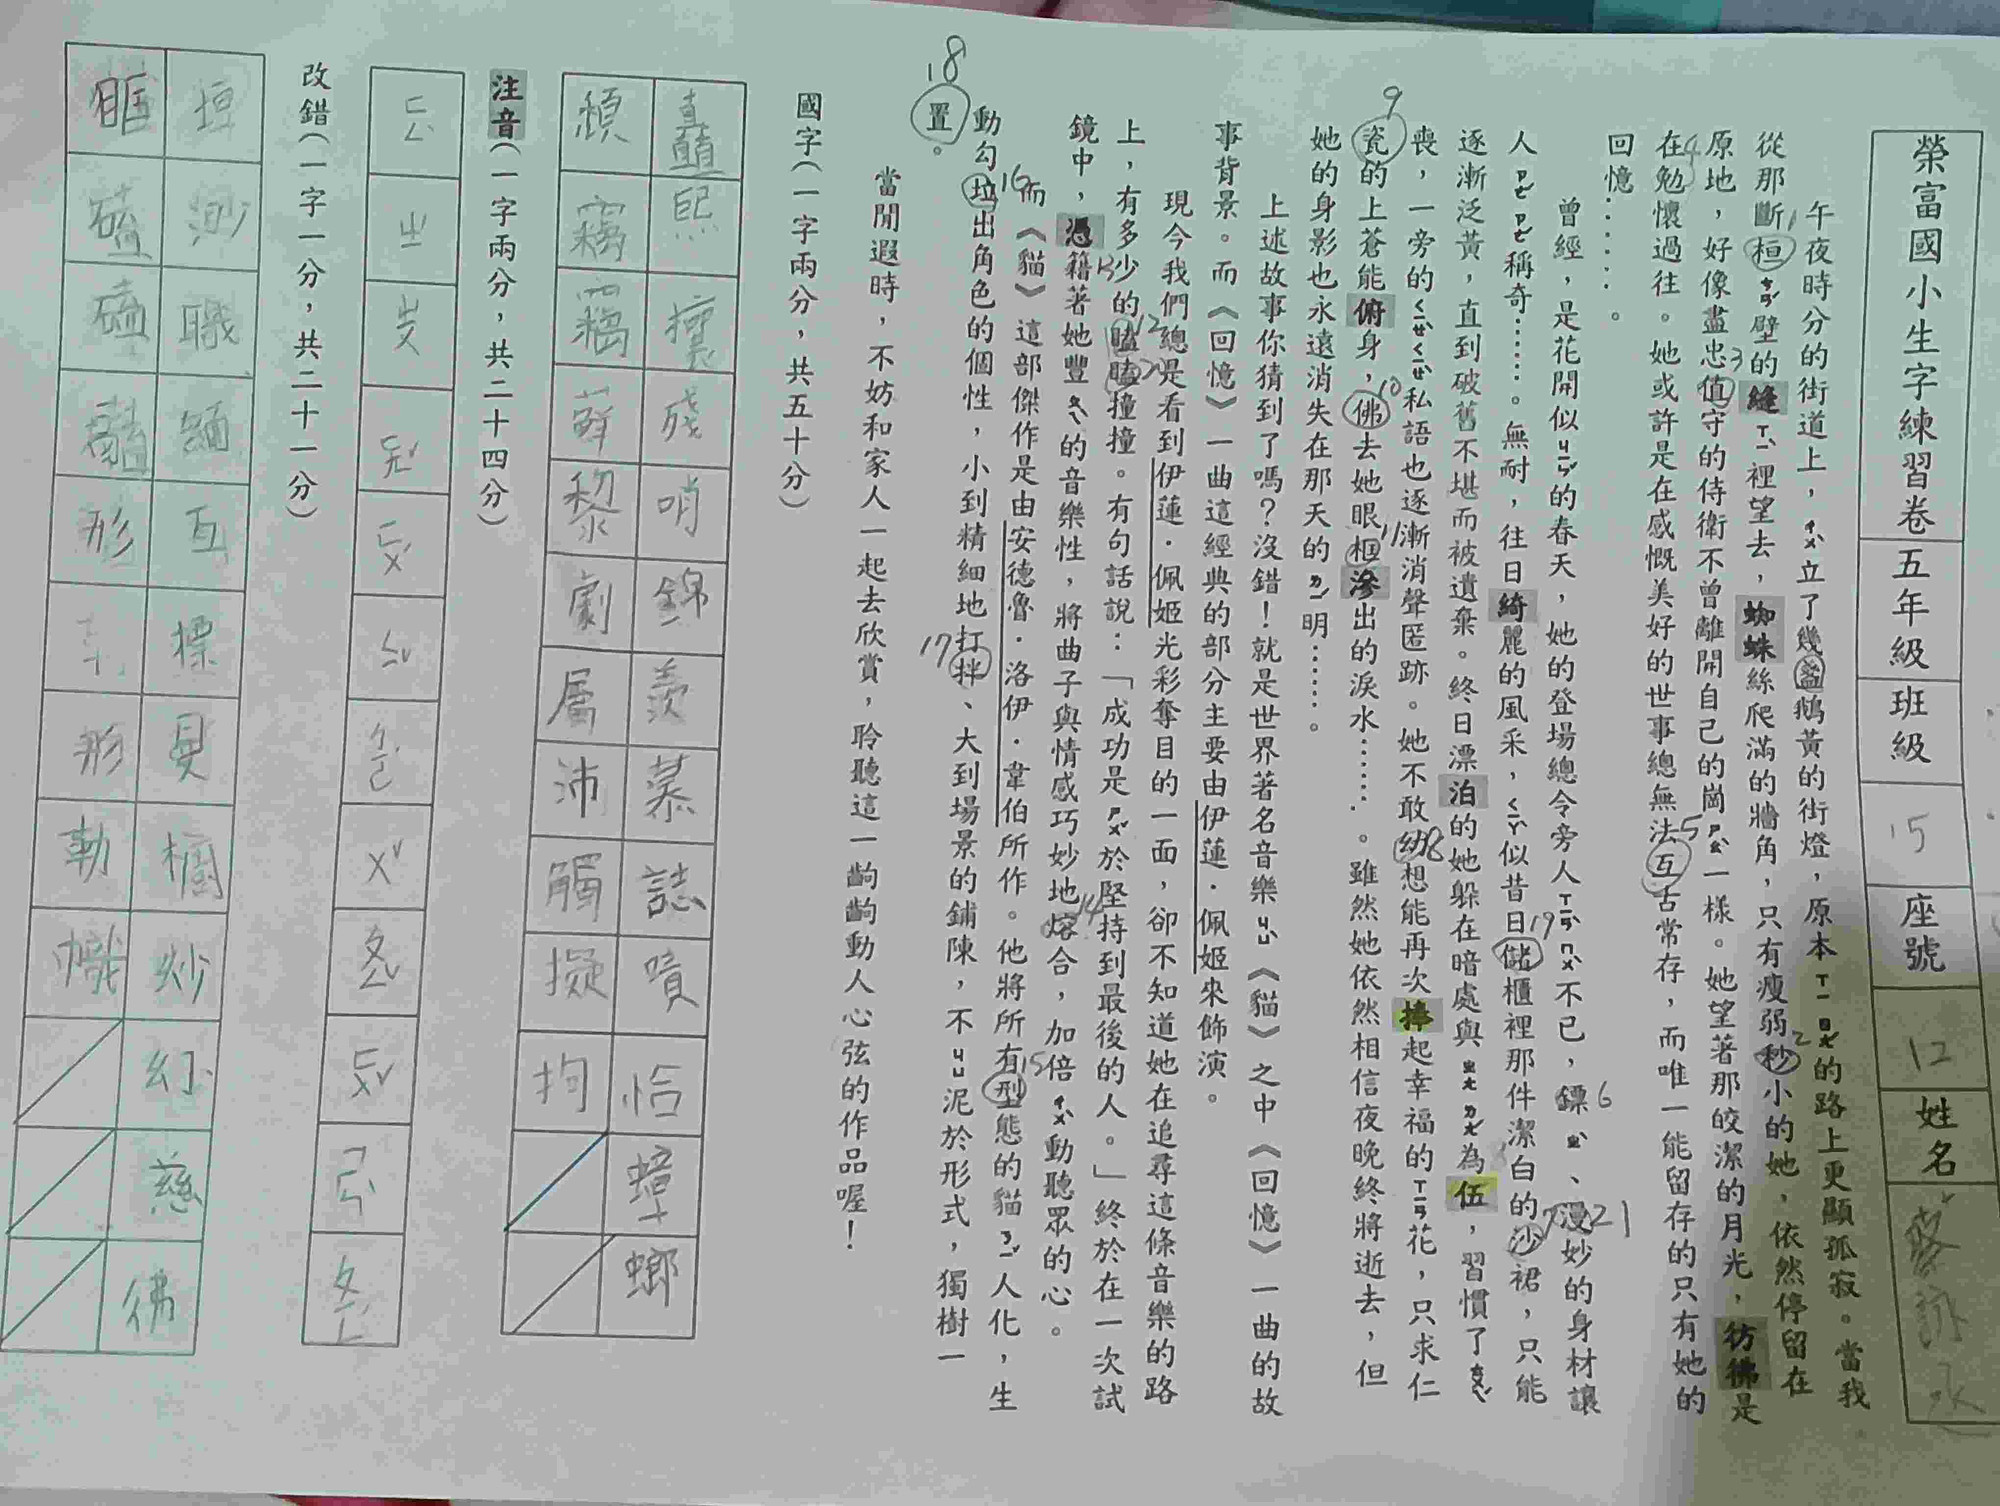 榮富國小生字練習卷 五年級 班級 15 座號 12 姓名
午夜時分的街道上，ㄔㄨˋ立了幾盞鵝黃的街燈，原本ㄒㄧ ㄖㄤˇ的路上更顯孤寂。當我
從那斷桓ㄘㄢˊ壁的縫ㄒㄧˋ裡望去，蜘蛛絲爬滿的牆角，只有瘦弱秒小的她，依然停留在
原地，好像盡忠值守的侍衛不曾離開自己的崗ㄕㄠˋ一樣。她望著那皎潔的月光，彷彿是
在勉懷過往。她或許是在感慨美好的世事總無法互古常存，而唯一能留存的只有她的
回憶……。
曾經，是花開似ㄐㄧㄣˇ的春天，她的登場總令旁人ㄒㄧㄢˋ ㄇㄨˋ不已，鏢ㄓˋ、漫妙的身材讓
人ㄗㄜˊ ㄗㄜˊ稱奇……。無耐，往日綺麗的風采，ㄑㄧㄚˋ似昔日儲櫃裡那件潔白的沙裙，只能
逐漸泛黃，直到破舊不堪而被遺棄。終日漂泊的她躲在暗處與ㄓㄤ ㄌㄤˊ為伍，習慣了ㄊㄨㄟˊ
喪，一旁的ㄑㄧㄝˋ ㄑㄧㄝˋ私語也逐漸消聲匿跡。她不敢幼想能再次捧起幸福的ㄒㄧㄢ花，只求仁
瓷的上蒼能俯身，佛去她眼框滲出的淚水……。雖然她依然相信夜晚終將逝去，但
她的身影也永遠消失在那天的ㄌㄧˊ明……。
上述故事你猜到了嗎？沒錯！就是世界著名音樂ㄐㄩˋ《貓》之中《回憶》一曲的故
事背景。而《回憶》一曲這經典的部分主要由伊蓮．佩姬來飾演。
現今我們總是看到伊蓮．佩姬光彩奪目的一面，卻不知道她在追尋這條音樂的路
上，有多少的瞌瞌撞撞。有句話說：「成功是ㄕㄨˇ於堅持到最後的人。」終於在一次試
鏡中，憑籍著她豐ㄆㄟˋ的音樂性，將曲子與情感巧妙地熔合，加倍ㄔㄨˋ動聽眾的心。
而《貓》這部傑作是由安德魯．洛伊．韋伯所作。他將所有型態的貓ㄋㄧˇ人化，生
動勾垃出角色的個性，小到精細地打拌、大到場景的鋪陳，不ㄐㄩ泥於形式，獨樹一
置。
當閒遐時，不妨和家人一起去欣賞，聆聽這一齣齣動人心弦的作品喔！
國字（一字兩分，共五十分）
矗 熙 攘 殘 哨 錦 羨 慕 誌 嘖 恰 蟑 螂
頹 竊 竊 鮮 黎 劇 屬 沛 觸 擬 拘
注音（一字兩分，共二十四分）
改錯（一字一分，共二十一分）
垣 渺 職 緬 亙 標 曼 櫥 紗 幻 慈 拂
眶 磕 磕 藉 形 扮 勒 幟
1 2 3 4 5 6 7 9 10 11 12 14 15 16 17 18 19 21